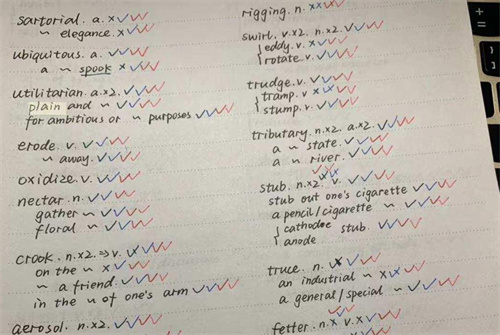 sartorial. a. ×✓✓✓
~ elegance. ×✓✓✓
ubiquitous. a. ✓✓✓✓
a ~ spook ×✓✓✓
utilitarian. a.×2. ✓✓✓✓
plain and ~ ✓✓✓✓
for ambitious or ~ purposes ✓✓✓✓
erode. v. ✓✓✓✓
~ away. ✓✓✓✓
oxidize. v. ✓✓✓✓
nectar. n. ✓✓✓✓
gather ~ ✓✓✓✓
floral ~ ✓✓✓✓
crook. n.×2. ⇒ v. ×✓✓✓
on the ~ ×✓✓✓
~ a friend. ✓✓✓✓
in the ~ of one's arm ✓✓✓✓
aerosol. n.×2. ✓✓✓✓
rigging. n. ××✓✓
swirl. v.×2. n.×2. ✓✓✓✓
eddy. v. ×✓✓✓
rotate. v. ✓✓✓✓
trudge. v. ✓✓✓✓
tramp. v ×✓×✓
stump. v. ✓✓✓✓
tributary. n.×2. a.×2. ✓✓✓✓
a ~ state. ✓✓✓✓
a ~ river. ✓✓✓✓
stub. n.×2. v. ✓✓✓✓
stub out one's cigarette ✓✓✓✓
a pencil/cigarette ~ ✓✓✓✓
cathode
anode stub. ✓✓✓✓
truce. n. ×✓✓✓
an industrial ~ ××✓✓
a general/special ~ ✓✓✓✓
fetter. n.× v.×✓✓✓